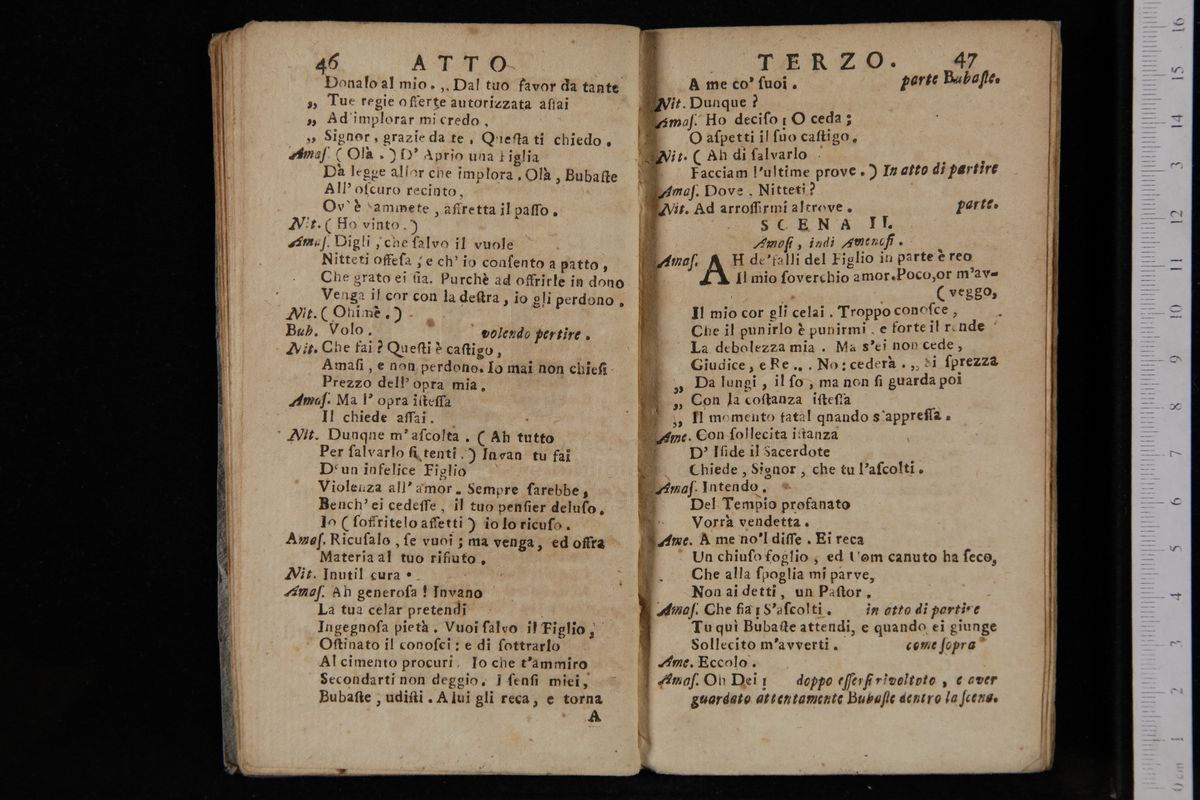 46 ATTO
Donalo al mio. ,, Dal tuo favor da tante
,, Tue regie offerte autorizzata aſſai
,, Ad implorar mi credo.
,, Signor, grazie da te. Queſta ti chiedo.
Amaſ. ( Olà. ) D' Aprio una Figlia
Dà legge allor che implora. Olà, Bubaſte
All' oſcuro recinto,
Ov' è Sammete, affretta il paſſo.
Nit. ( Ho vinto. )
Amaſ. Digli, che ſalvo il vuole
Nitteti offeſa, e ch' io conſento a patto,
Che grato ei ſia. Purchè ad offrirle in dono
Venga il cor con la deſtra, io gli perdono.
Nit. ( Ohimè. )
Bub. Volo. volendo pertire.
Nit. Che fai? Queſti è caſtigo,
Amaſi, e non perdono. Io mai non chieſi
Prezzo dell' opra mia.
Amaſ. Ma l' opra iſteſſa
Il chiede aſſai.
Nit. Dunqne m'aſcolta. ( Ah tutto
Per ſalvarlo ſi tenti. ) Invan tu fai
D'un infelice Figlio
Violenza all' amor. Sempre ſarebbe,
Bench' ei cedeſſe, il tuo penſier deluſo.
Io ( ſoffritelo affetti ) io lo ricuſo.
Amaſ. Ricuſalo, ſe vuoi; ma venga, ed offra
Materia al tuo rifiuto.
Nit. Inutil cura.
Amaſ. Ah generoſa! Invano
La tua celar pretendi
Ingegnoſa pietà. Vuoi ſalvo il Figlio,
Oſtinato il conoſci: e di ſottrarlo
Al cimento procuri. Io che t'ammiro
Secondarti non deggio. I ſenſi miei,
Bubaſte, udiſti. A lui gli reca, e torna
A
TERZO. 47
A me co' ſuoi. parte Bubaſte.
Nit. Dunque?
Amaſ. Ho deciſo: O ceda;
O aſpetti il ſuo caſtigo.
Nit. ( Ah di ſalvarlo
Facciam l'ultime prove. ) In atto di partire
Amaſ. Dove, Nitteti?
Nit. Ad arroſſirmi altrove. parte.
SCENA II.
Amoſi, indi Amenoſi.
Amaſ. AH de'falli del Figlio in parte è reo
Il mio ſoverchio amor. Poco, or m'av-
( veggo,
Il mio cor gli celai. Troppo conoſce,
Che il punirlo è punirmi. e forte il rende
La debolezza mia. Ma s'ei non cede,
Giudice, e Re... No: cederà. ,, Si ſprezza
,, Da lungi, il ſo, ma non ſi guarda poi
,, Con la coſtanza iſteſſa
,, Il momento fatal qnando s'appreſſa.
Ame. Con ſollecita iſtanza
D' Iſide il Sacerdote
Chiede, Signor, che tu l'aſcolti.
Amaſ. Intendo.
Del Tempio profanato
Vorrà vendetta.
Ame. A me no'l diſſe. Ei reca
Un chiuſo foglio, ed Uom canuto ha ſeco,
Che alla ſpoglia mi parve,
Non ai detti, un Paſtor.
Amaſ. Che fia: S'aſcolti. in atto di partire
Tu quì Bubaſte attendi, e quando ei giunge
Sollecito m'avverti. come ſopra
Ame. Eccolo.
Amaſ. Oh Dei: doppo eſſerſi rivoltoto, e aver
guardato attentamente Bubaſte dentro la ſcena.